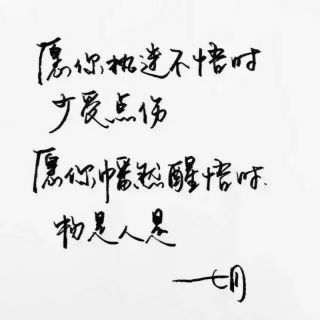 愿你执迷不悟时
少受点伤
愿你幡然醒悟时
物是人是
——七月